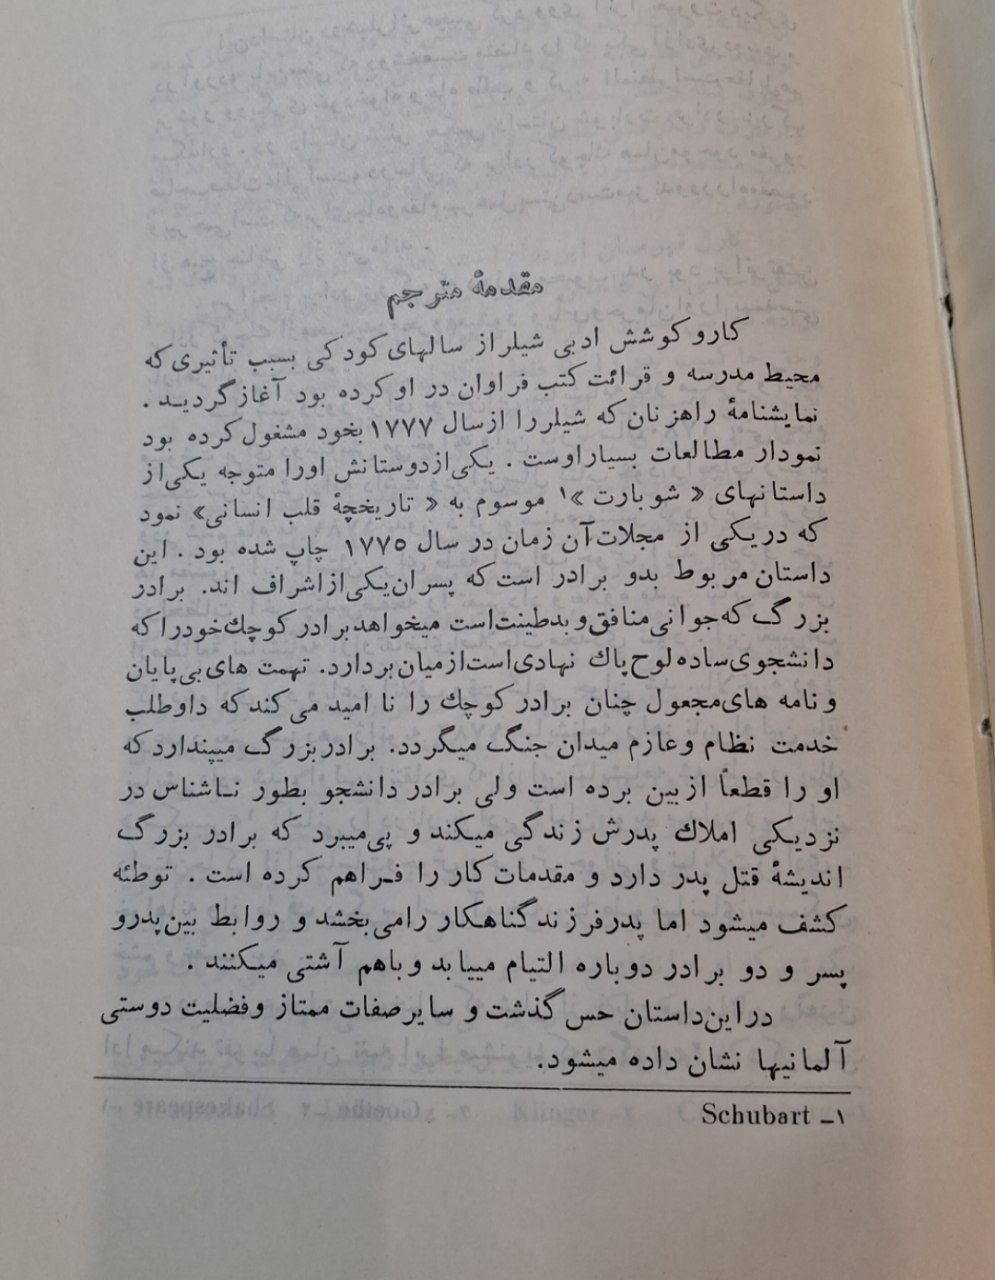 مقدمهٔ مترجم
کارو کوشش ادبی شیلر از سالهای کودکی بسبب تأثیری که
محیط مدرسه و قرائت کتب فراوان در او کرده بود آغاز گردید .
نمایشنامهٔ راهزنان که شیلر را از سال ۱۷۷۷ بخود مشغول کرده بود
نمودار مطالعات بسیار اوست . یکی از دوستانش اورا متوجه یکی از
داستانهای « شوبارت »۱ موسوم به « تاریخچهٔ قلب انسانی» نمود
که در یکی از مجلات آن زمان در سال ۱۷۷۵ چاپ شده بود . این
داستان مربوط بدو برادر است که پسران یکی از اشراف اند. برادر
بزرگ که جوانی منافق و بدطینت است میخواهد برادر کوچك خود را که
دانشجوی ساده لوح پاك نهادی است از میان بردارد. تهمت های بی پایان
و نامه های مجعول چنان برادر کوچك را نا امید می کند که داوطلب
خدمت نظام و عازم میدان جنگ میگردد. برادر بزرگ میپندارد که
او را قطعاً از بین برده است ولی برادر دانشجو بطور ناشناس در
نزدیکی املاك پدرش زندگی میکند و پی میبرد که برادر بزرگ
اندیشهٔ قتل پدر دارد و مقدمات کار را فراهم کرده است . توطئه
کشف میشود اما پدر فرزند گناهکار رامی بخشد و روابط بین پدرو
پسر و دو برادر دوباره التیام مییابد و باهم آشتی میکنند .
در این داستان حس گذشت و سایر صفات ممتاز و فضلیت دوستی
آلمانیها نشان داده میشود.
۱- Schubart